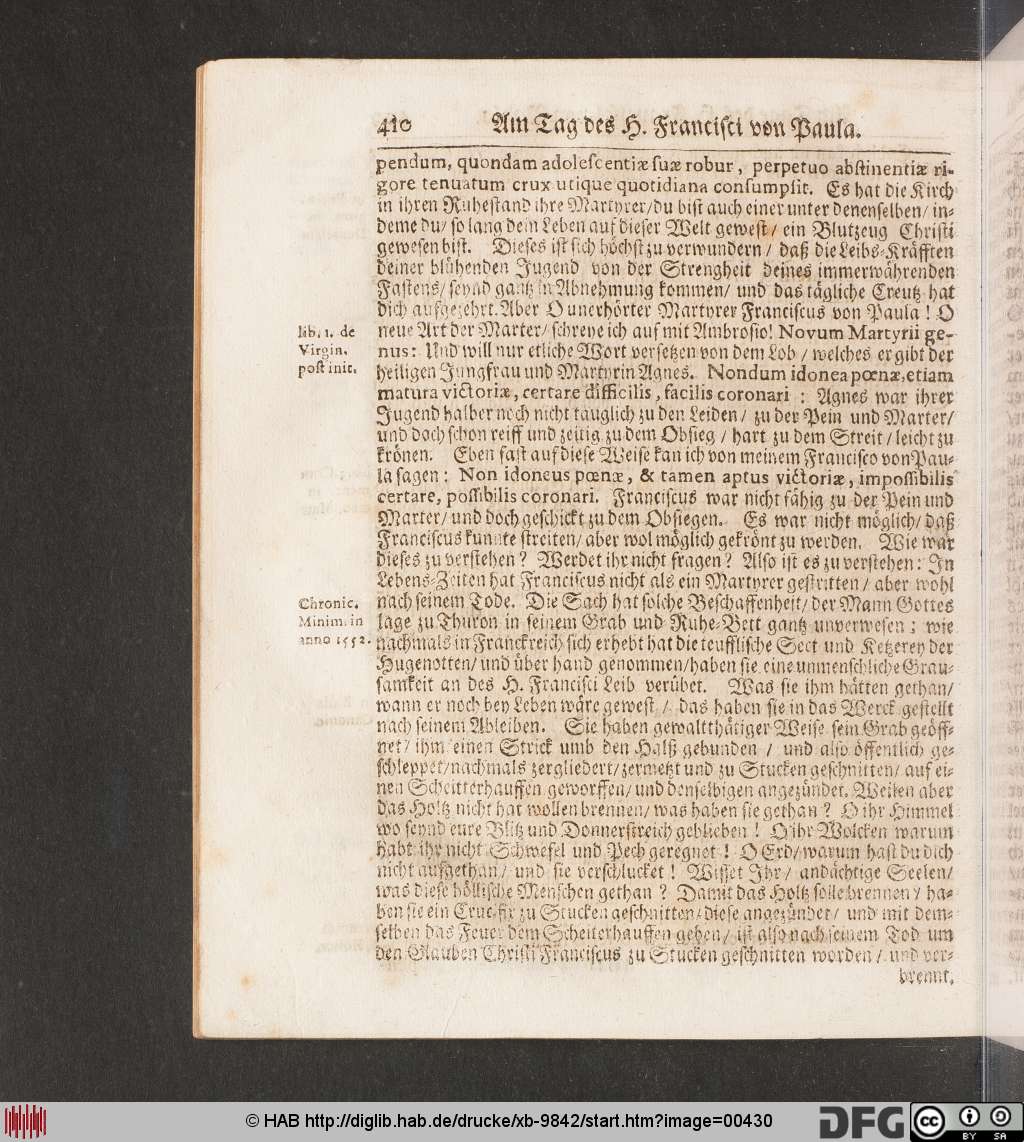 410 Am Tag des H. Francisci von Paula.
pendum, quondam adolescentiæ suæ robur, perpetuo abstinentiæ ri-
gore tenuatum crux utique quotidiana consumpsit. Es hat die Kirch
in ihren Ruhestand ihre Martyrer/du bist auch einer unter denenselben/ in-
deme du/ so lang dein Leben auf dieser Welt gewest/ ein Blutzeug Christi
gewesen bist. Dieses ist sich höchst zu verwundern/ daß die Leibs-Kräfften
deiner blühenden Jugend von der Strengheit deines immerwährenden
Fastens/ seynd gantz in Abnehmung kommen/ und das tägliche Creutz hat
dich aufgezehrt. Aber O unerhörter Martyrer Franciscus von Paula! O
neue Art der Marter/ schreye ich auf mit Ambrosio! Novum Martyrii ge-
nus: Und will nur etliche Wort versetzen von dem Lob/ welches er gibt der
heiligen Jungfrau und Martyrin Agnes. Nondum idonea pœnæ, etiam
matura victoriæ, certare difficilis, facilis coronari: Agnes war ihrer
Jugend halber noch nicht tauglich zu den Leiden/ zu der Pein und Marter/
und doch schon reiff und zeitig zu dem Obsieg/ hart zu dem Streit/ leicht zu
krönen. Eben fast auf diese Weise kan ich von meinem Francisco von Pau-
la sagen: Non idoneus pœnæ, & tamen aptus victoriæ, impossibilis
certare, possibilis coronari. Franciscus war nicht fähig zu der Pein und
Marter/ und doch geschickt zu dem Obsiegen. Es war nicht möglich/ daß
Franciscus kunnte streiten/ aber wol möglich gekrönt zu werden. Wie war
dieses zu verstehen? Werdet ihr nicht fragen? Also ist es zu verstehen: In
Lebens-Zeiten hat Franciscus nicht als ein Martyrer gestritten/ aber wohl
nach seinem Tode. Die Sach hat solche Beschaffenheit/ der Mann Gottes
lage zu Thuron in seinem Grab und Ruhe-Bett gantz unverwesen; wie
nachmals in Franckreich sich erhebt hat die teufflische Sect und Ketzerey der
Hugenotten/ und über hand genommen/haben sie eine unmenschliche Grau-
samkeit an des H. Francisci Leib verübet. Was sie ihm hätten gethan/
wann er noch bey Leben wäre gewest/ das haben sie in das Werck gestellt
nach seinem Ableiben. Sie haben gewaltthätiger Weise sein Grab geöff-
net/ ihm einen Strick umb den Halß gebunden/ und also öffentlich ge-
schleppet/nachmals zergliedert/zermetzt und zu Stucken geschnitten/ auf ei-
nen Scheitterhauffen geworffen/ und denselbigen angezündet. Weilen aber
das Holtz nicht hat wollen brennen/ was haben sie gethan? O ihr Himmel
wo seynd eure Blitz und Donnerstreich geblieben! O ihr Wolcken warum
habt ihr nicht Schwefel und Pech geregnet! O Erd/ warum hast du dich
nicht aufgethan/ und sie verschlucket! Wisset Ihr/ andächtige Seelen/
was diese höllische Menschen gethan? Damit das Holtz solle brennen/ ha-
ben sie ein Crucifix zu Stucken geschnitten/ diese angezündet/ und mit dem-
selben das Feuer dem Scheiterhauffen geben/ ist also nach seinem Tod um
den Glauben Christi Franciscus zu Stucken geschnitten worden/ und ver-
brennt.
lib. 1. de
Virgin.
post init.
Chronic.
Minim. in
anno 1552.
© HAB http://diglib.hab.de/drucke/xb-9842/start.htm?image=00430
DFG
cc
BY SA